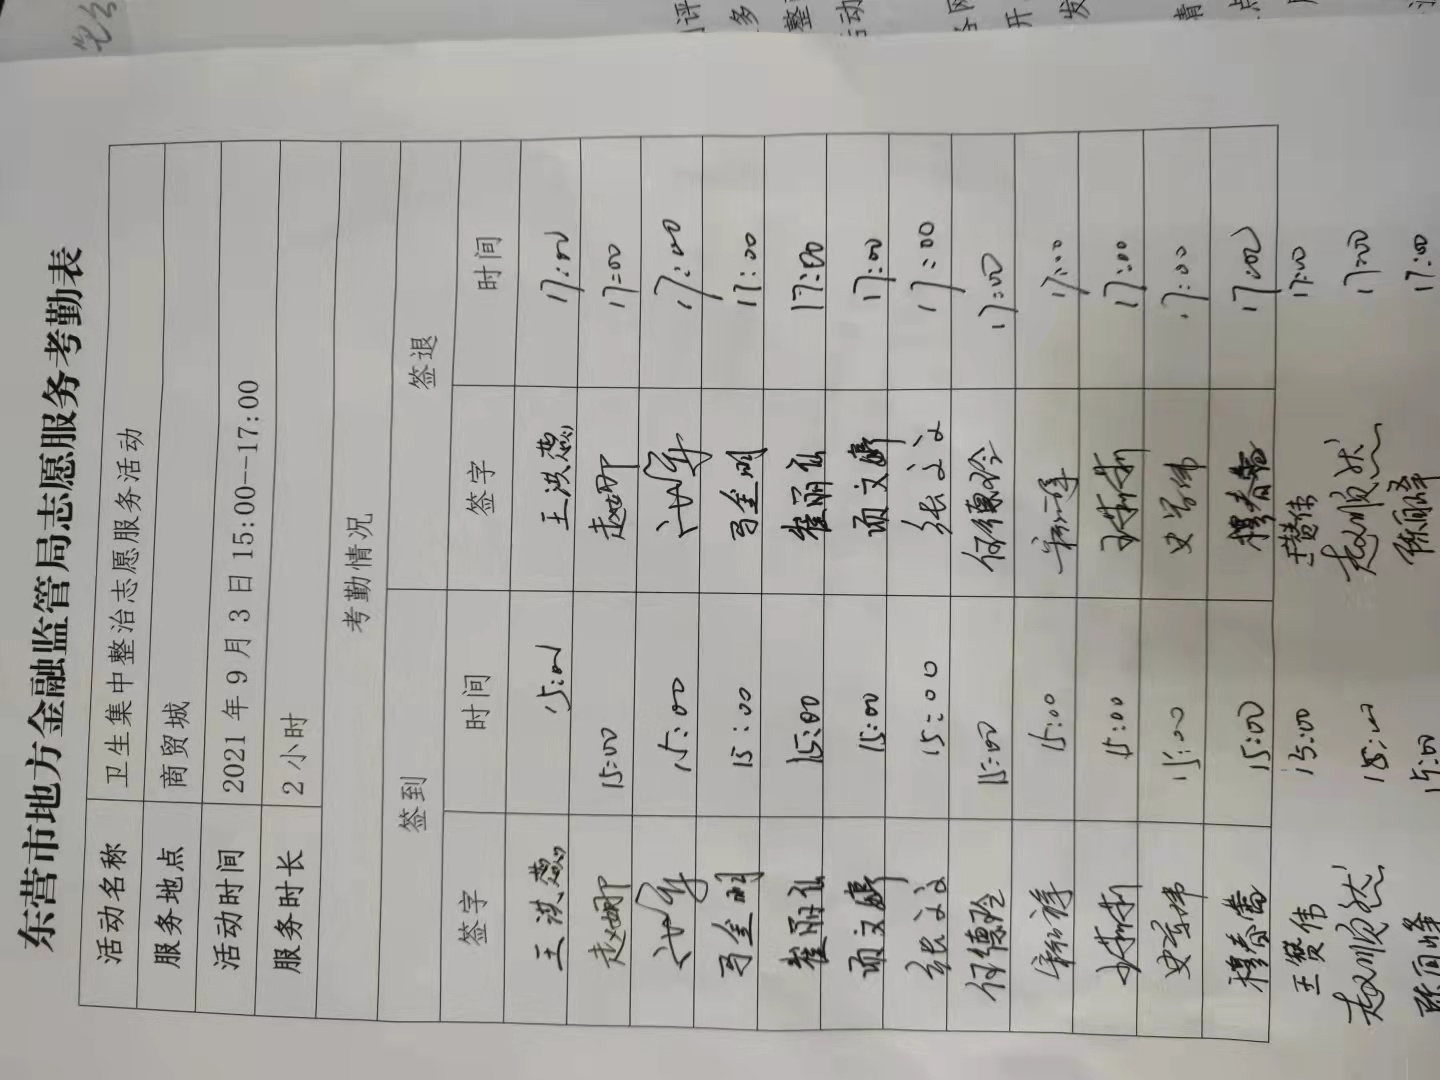 东营市地方金融监管局志愿服务考勤表
活动名称 卫生集中整治志愿服务活动
服务地点 商贸城
活动时间 2021年9月3日15:00--17:00
服务时长 2小时
考勤情况
签到 签退
签字 时间 签字 时间
王洪燕 15:00 王洪燕 17:00
赵娜 15:00 赵娜 17:00
15:00 17:00
马金明 15:00 马金明 17:00
崔丽弘 15:00 崔丽弘 17:00
顾文婷 15:00 顾文婷 17:00
张文文 15:00 张文文 17:00
何德玲 15:00 何德玲 17:00
15:00 17:00
15:00 17:00
史军伟 15:00 史军伟 17:00
穆春蕾 15:00 穆春蕾 17:00
王赞伟 15:00 王赞伟 17:00
赵顺达 15:00 赵顺达 17:00
15:00 17:00